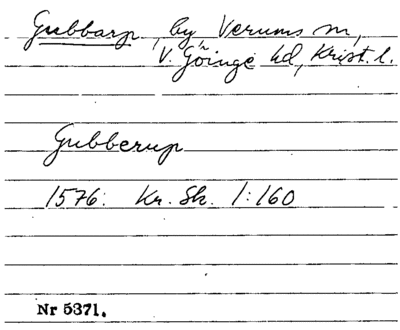 Gubbarp, by Verums sn,
V. Göinge hd, Krist. l.
Gubberup
1576: Kr. Sk. 1:160
Nr 5371.